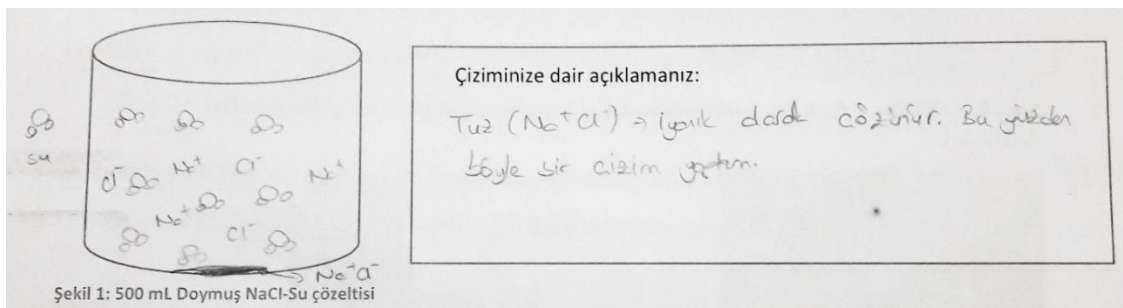 su
Cl⁻ Na⁺ Cl⁻ Na⁺
Na⁺
Cl⁻
Na⁺Cl⁻
Şekil 1: 500 mL Doymuş NaCl-Su çözeltisi
Çiziminize dair açıklamanız:
Tuz (Na⁺Cl⁻) → iyonik olarak çözünür. Bu yüzden
böyle bir çizim yaptım.